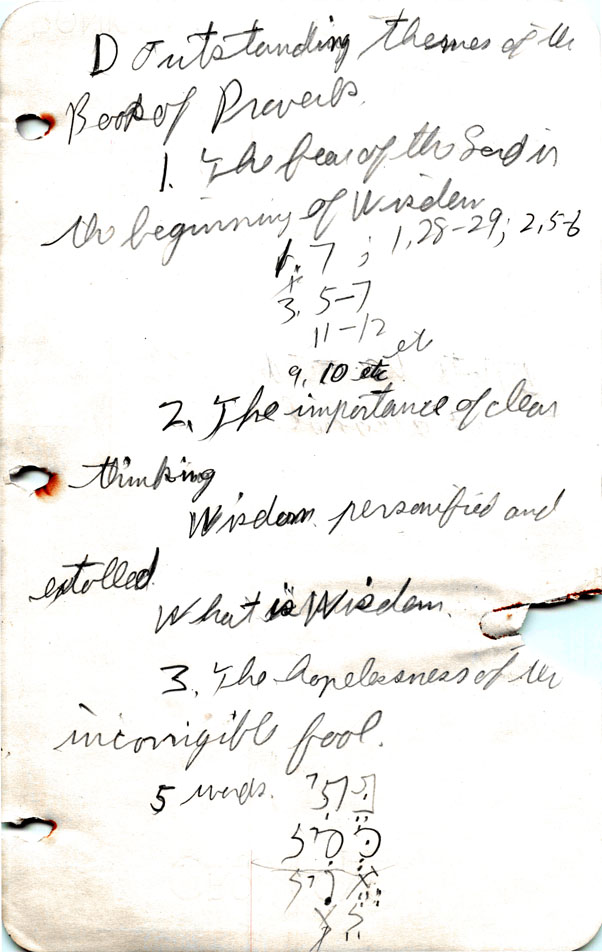 D Outstanding themes of the
Book of Proverbs.
1. The fear of the Lord is
the beginning of Wisdom
1. 7 ; 1, 28-29; 2, 5-6
3. 5-7
11-12
etc
9, 10 etc
2. The importance of clear
thinking
Wisdom personified and
extolled
What is Wisdom.
3. The hopelessness of the
incorrigible fool.
5 words.